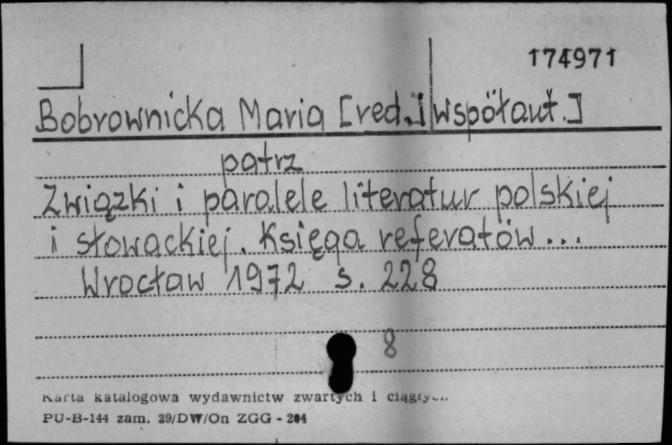 174971
Bobrownicka Maria [red.i współaut.]
patrz
Związki i paralele literatur polskiej
i słowackiej. Księga referatów...
Wrocław 1972 s. 228
8
Karta katalogowa wydawnictw zwartych i ciągłych
PU-B-144 zam. 29/DW/On ZGG - 204